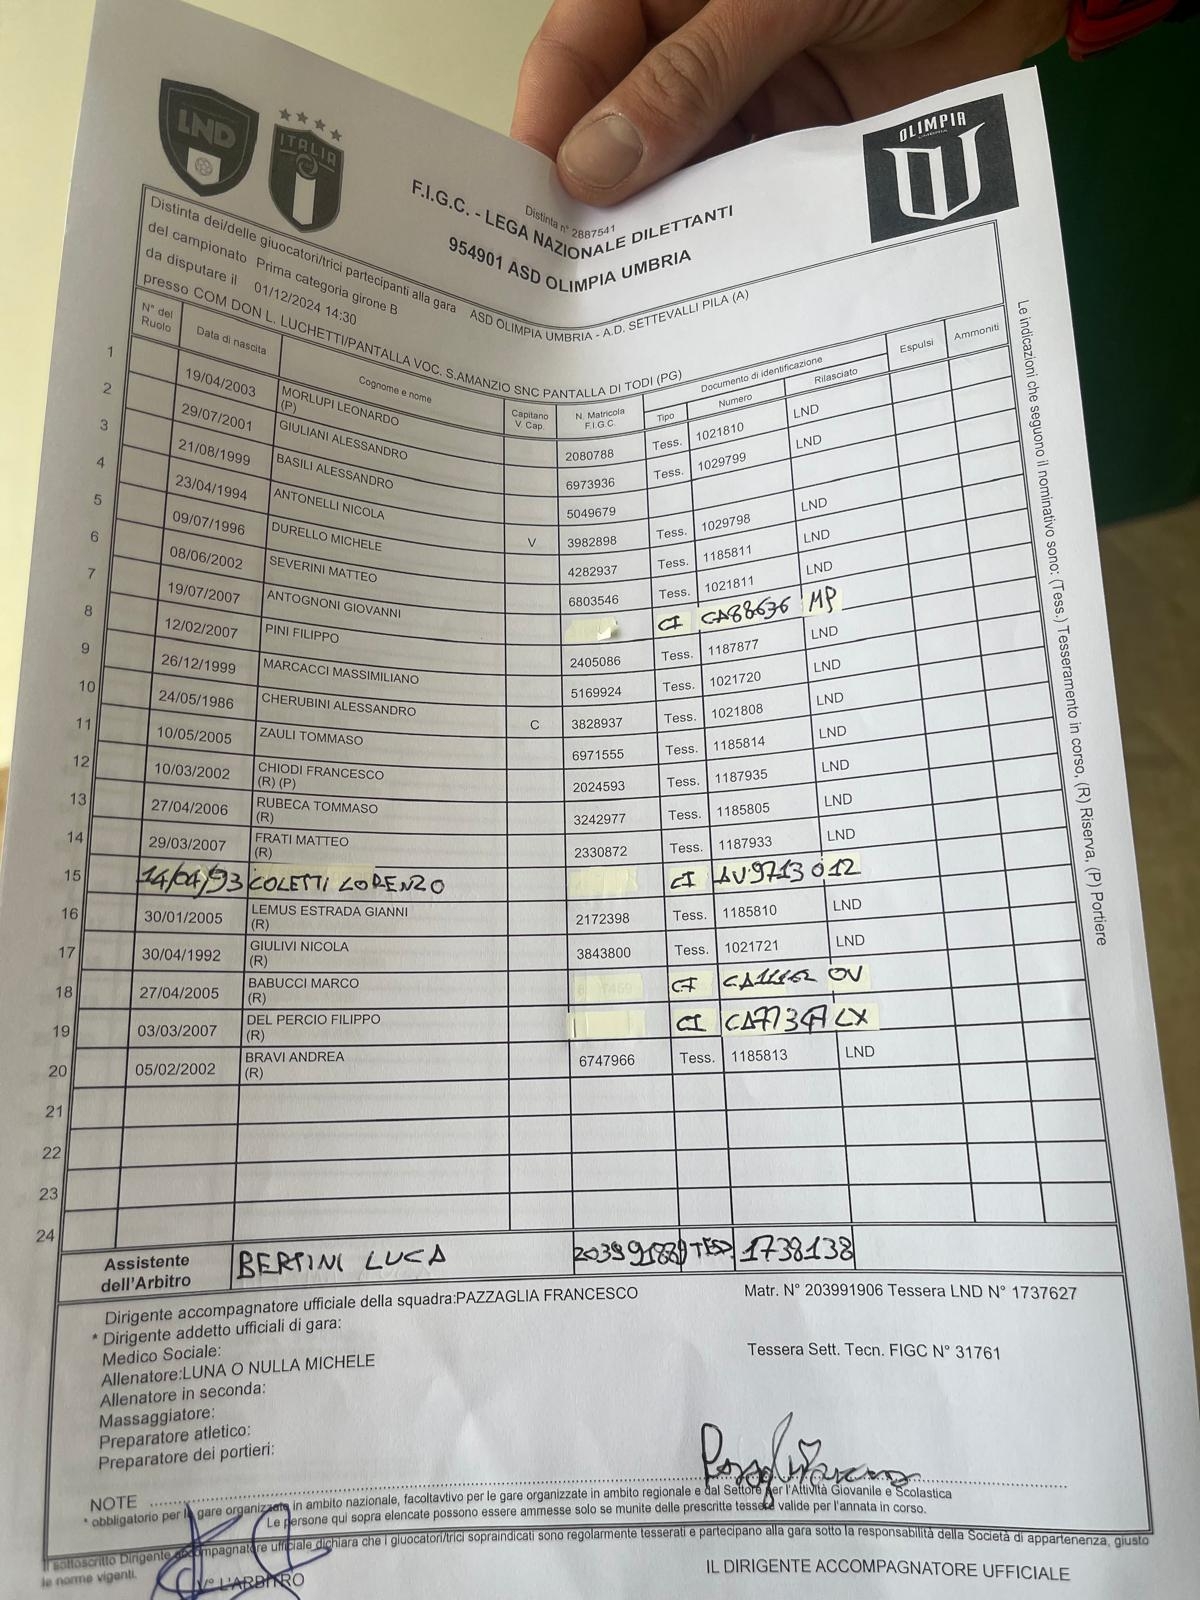 LND
ITALIA
OLIMPIA
UMBRIA
Distinta n° 2887541
F.I.G.C. - LEGA NAZIONALE DILETTANTI
954901 ASD OLIMPIA UMBRIA
Distinta dei/delle giuocatori/trici partecipanti alla gara ASD OLIMPIA UMBRIA - A.D. SETTEVALLI PILA (A)
del campionato Prima categoria girone B
da disputare il 01/12/2024 14:30
presso COM DON L. LUCHETTI/PANTALLA VOC. S.AMANZIO SNC PANTALLA DI TODI (PG)
N° del Ruolo Data di nascita Cognome e nome Capitano V. Cap. N. Matricola F.I.G.C. Documento di identificazione Tipo Numero Rilasciato Espulsi Ammoniti
1 19/04/2003 MORLUPI LEONARDO (P) 2080788 Tess. 1021810 LND
2 29/07/2001 GIULIANI ALESSANDRO 6973936 Tess. 1029799 LND
3 21/08/1999 BASILI ALESSANDRO 5049679
4 23/04/1994 ANTONELLI NICOLA V 3982898 Tess. 1029798 LND
5 09/07/1996 DURELLO MICHELE 4282937 Tess. 1185811 LND
6 08/06/2002 SEVERINI MATTEO 6803546 Tess. 1021811 LND
7 19/07/2007 ANTOGNONI GIOVANNI CI CA88636 MP
8 12/02/2007 PINI FILIPPO 2405086 Tess. 1187877 LND
9 26/12/1999 MARCACCI MASSIMILIANO 5169924 Tess. 1021720 LND
10 24/05/1986 CHERUBINI ALESSANDRO C 3828937 Tess. 1021808 LND
11 10/05/2005 ZAULI TOMMASO 6971555 Tess. 1185814 LND
12 10/03/2002 CHIODI FRANCESCO (R) (P) 2024593 Tess. 1187935 LND
13 27/04/2006 RUBECA TOMMASO (R) 3242977 Tess. 1185805 LND
14 29/03/2007 FRATI MATTEO (R) 2330872 Tess. 1187933 LND
15 14/04/93 COLETTI LORENZO CI AV9713012
16 30/01/2005 LEMUS ESTRADA GIANNI (R) 2172398 Tess. 1185810 LND
17 30/04/1992 GIULIVI NICOLA (R) 3843800 Tess. 1021721 LND
18 27/04/2005 BABUCCI MARCO (R) CI OV
19 03/03/2007 DEL PERCIO FILIPPO (R) CI CA77347 LX
20 05/02/2002 BRAVI ANDREA (R) 6747966 Tess. 1185813 LND
21
22
23
24
Assistente dell'Arbitro BERTINI LUCA TESS 1738138
Dirigente accompagnatore ufficiale della squadra:PAZZAGLIA FRANCESCO Matr. N° 203991906 Tessera LND N° 1737627
* Dirigente addetto ufficiali di gara:
Medico Sociale:
Allenatore:LUNA O NULLA MICHELE Tessera Sett. Tecn. FIGC N° 31761
Allenatore in seconda:
Massaggiatore:
Preparatore atletico:
Preparatore dei portieri:
NOTE
* obbligatorio per le gare organizzate in ambito nazionale, facoltavtivo per le gare organizzate in ambito regionale e dal Settore per l'Attività Giovanile e Scolastica
Le persone qui sopra elencate possono essere ammesse solo se munite delle prescritte tessere valide per l'annata in corso.
Il sottoscritto Dirigente accompagnatore ufficiale dichiara che i giuocatori/trici sopraindicati sono regolarmente tesserati e partecipano alla gara sotto la responsabilità della Società di appartenenza, giusto
le norme vigenti.
V° L'ARBITRO
IL DIRIGENTE ACCOMPAGNATORE UFFICIALE
Le indicazioni che seguono il nominativo sono: (Tess.) Tesseramento in corso, (R) Riserva, (P) Portiere